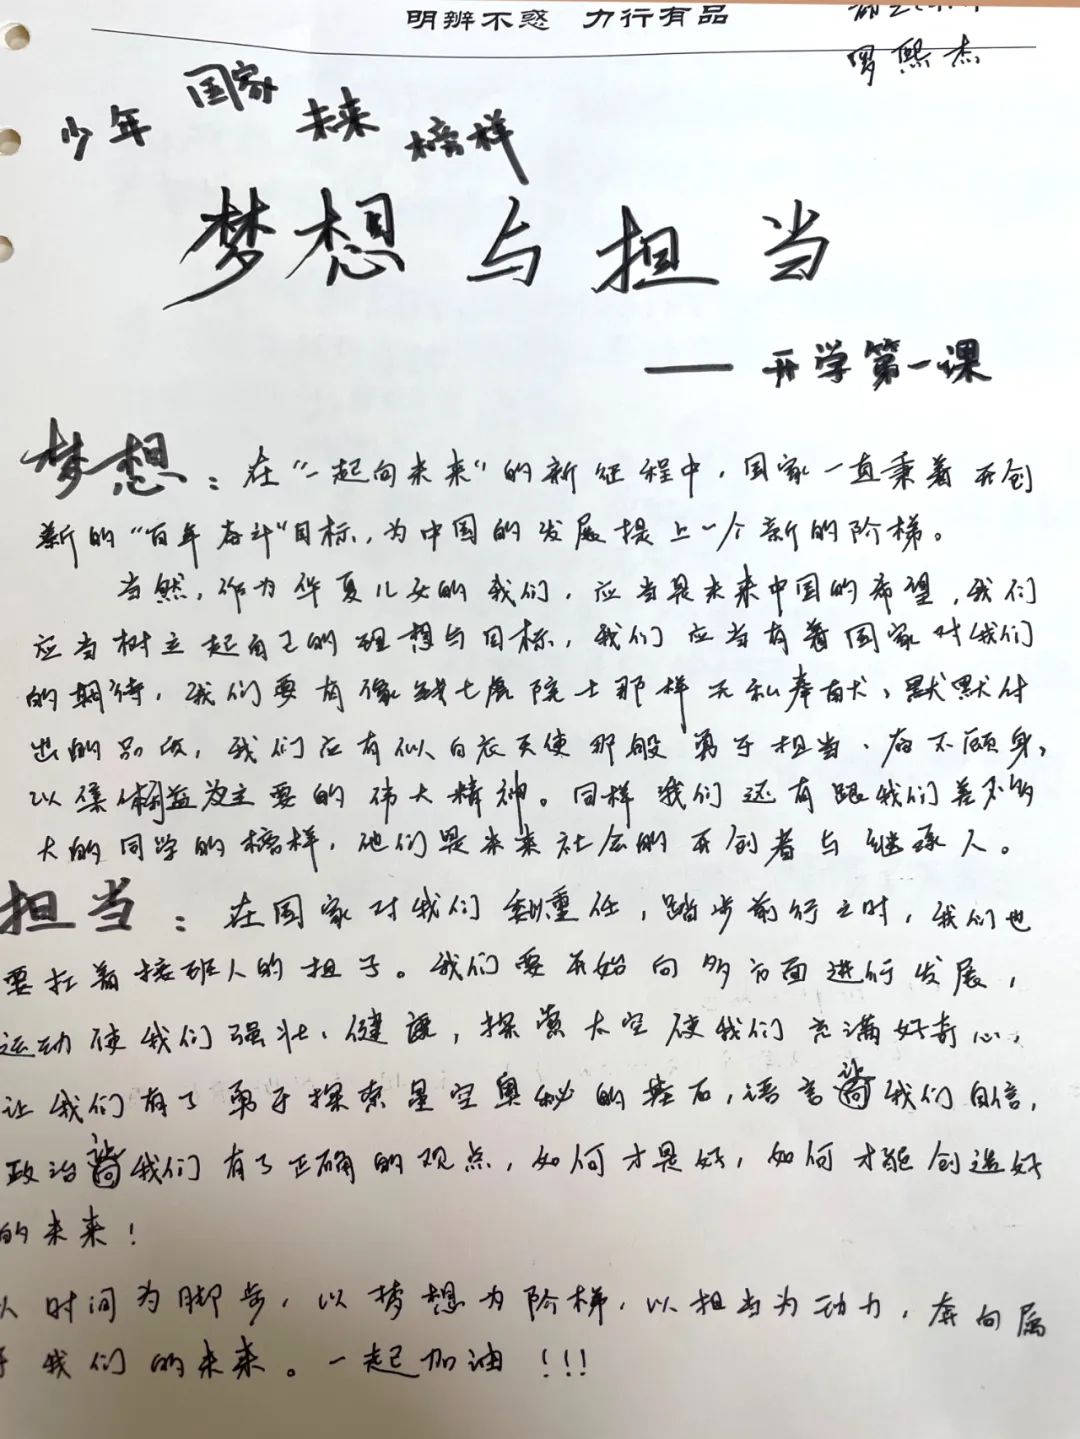 明辨不惑 力行有品
罗熙杰
少年 国家 未来 榜样
梦想与担当
——开学第一课
梦想：在“一起向未来”的新征程中，国家一直秉着开创
新的“百年奋斗”目标，为中国的发展提上一个新的阶梯。
当然，作为华夏儿女的我们，应当是未来中国的希望，我们
应当树立起自己的理想与目标，我们应当有着国家对我们
的期待，我们要有像钱七虎院士那样无私奉献、默默付
出的品质，我们应有似白衣天使那般勇于担当、奋不顾身，
以集体利益为主要的伟大精神。同样我们还有跟我们差不多
大的同学的榜样，他们是未来社会的开创者与继承人。
担当：在国家对我们 重任，踏步前行之时，我们也
要扛着接班人的担子。我们要开始向多方面进行发展，
运动使我们强壮、健康，探索太空使我们充满好奇心，
让我们有了勇于探索星空奥秘的基石，语言让我们自信，
政治让我们有了正确的观点，如何才是好，如何才能创造好
的未来！
以时间为脚步，以梦想为阶梯，以担当为动力，奔向属
于我们的未来。一起加油！！！